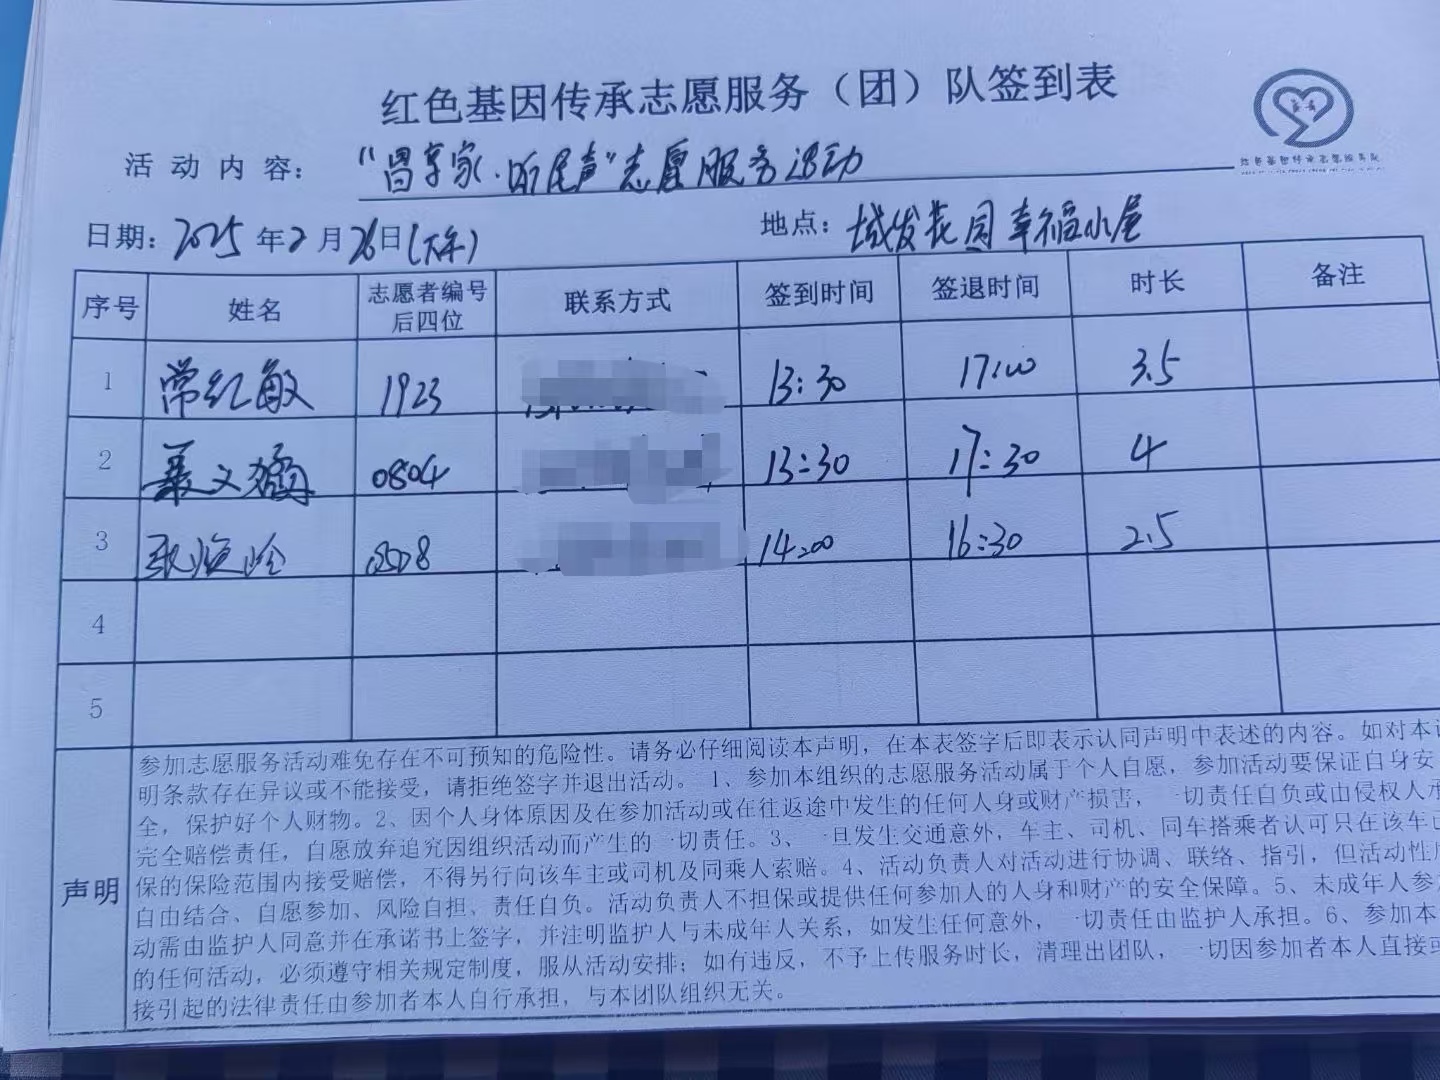 红色基因传承志愿服务（团）队签到表
活动内容：“昌享家·听尾声”志愿服务活动
日期：2025年2月26日(下午) 地点：城发花园幸福小屋
序号 姓名 志愿者编号后四位 联系方式 签到时间 签退时间 时长 备注
1 常红敏 1923 13:30 17:00 3.5
2 0804 13:30 17:30 4
3 14:00 16:30 2.5
4
5
声明
参加志愿服务活动难免存在不可预知的危险性。请务必仔细阅读本声明，在本表签字后即表示认同声明中表述的内容。如对本
明条款存在异议或不能接受，请拒绝签字并退出活动。1、参加本组织的志愿服务活动属于个人自愿，参加活动要保证自身安
全，保护好个人财物。2、因个人身体原因及在参加活动或在往返途中发生的任何人身或财产损害，一切责任自负或由侵权人承
完全赔偿责任，自愿放弃追究因组织活动而产生的一切责任。3、一旦发生交通意外，车主、司机、同车搭乘者认可只在该车已
保的保险范围内接受赔偿，不得另行向该车主或司机及同乘人索赔。4、活动负责人对活动进行协调、联络、指引，但活动性
自由结合、自愿参加、风险自担、责任自负。活动负责人不担保或提供任何参加人的人身和财产的安全保障。5、未成年人参
动需由监护人同意并在承诺书上签字，并注明监护人与未成年人关系，如发生任何意外，一切责任由监护人承担。6、参加本
的任何活动，必须遵守相关规定制度，服从活动安排；如有违反，不予上传服务时长，清理出团队，一切因参加者本人直接或
接引起的法律责任由参加者本人自行承担，与本团队组织无关。